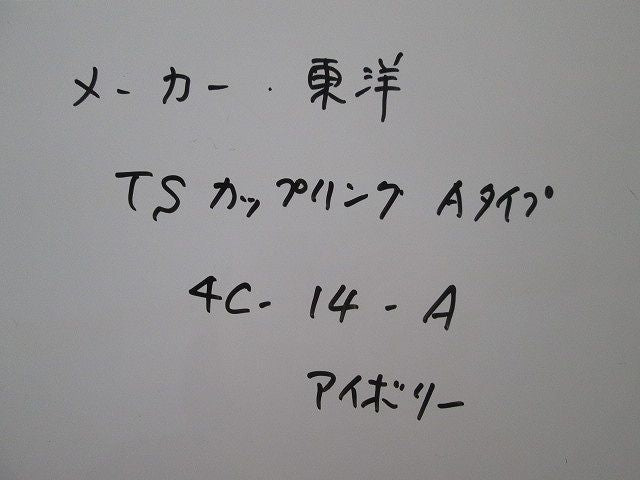 メーカー. 東洋
TS カップリング Aタイプ
4C- 14 - A
アイボリー